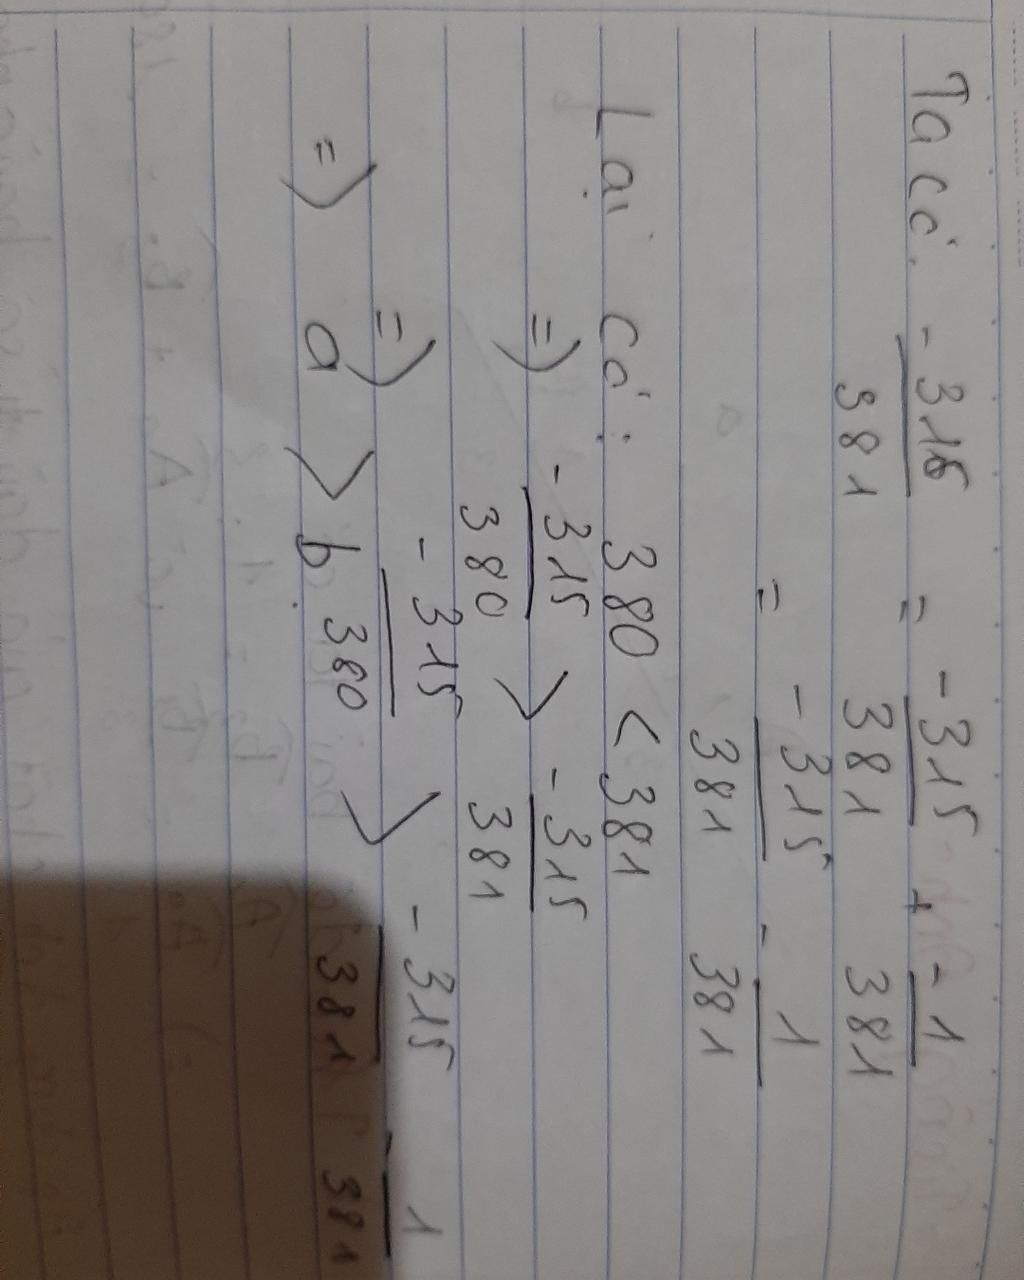 Ta có: -316/381 = -315/381 + -1/381
= -315/381 - 1/381
Lại có: 380 < 381
=) -315/380 > -315/381
=) -315/380 > -315/381 - 1/381
=) a > b